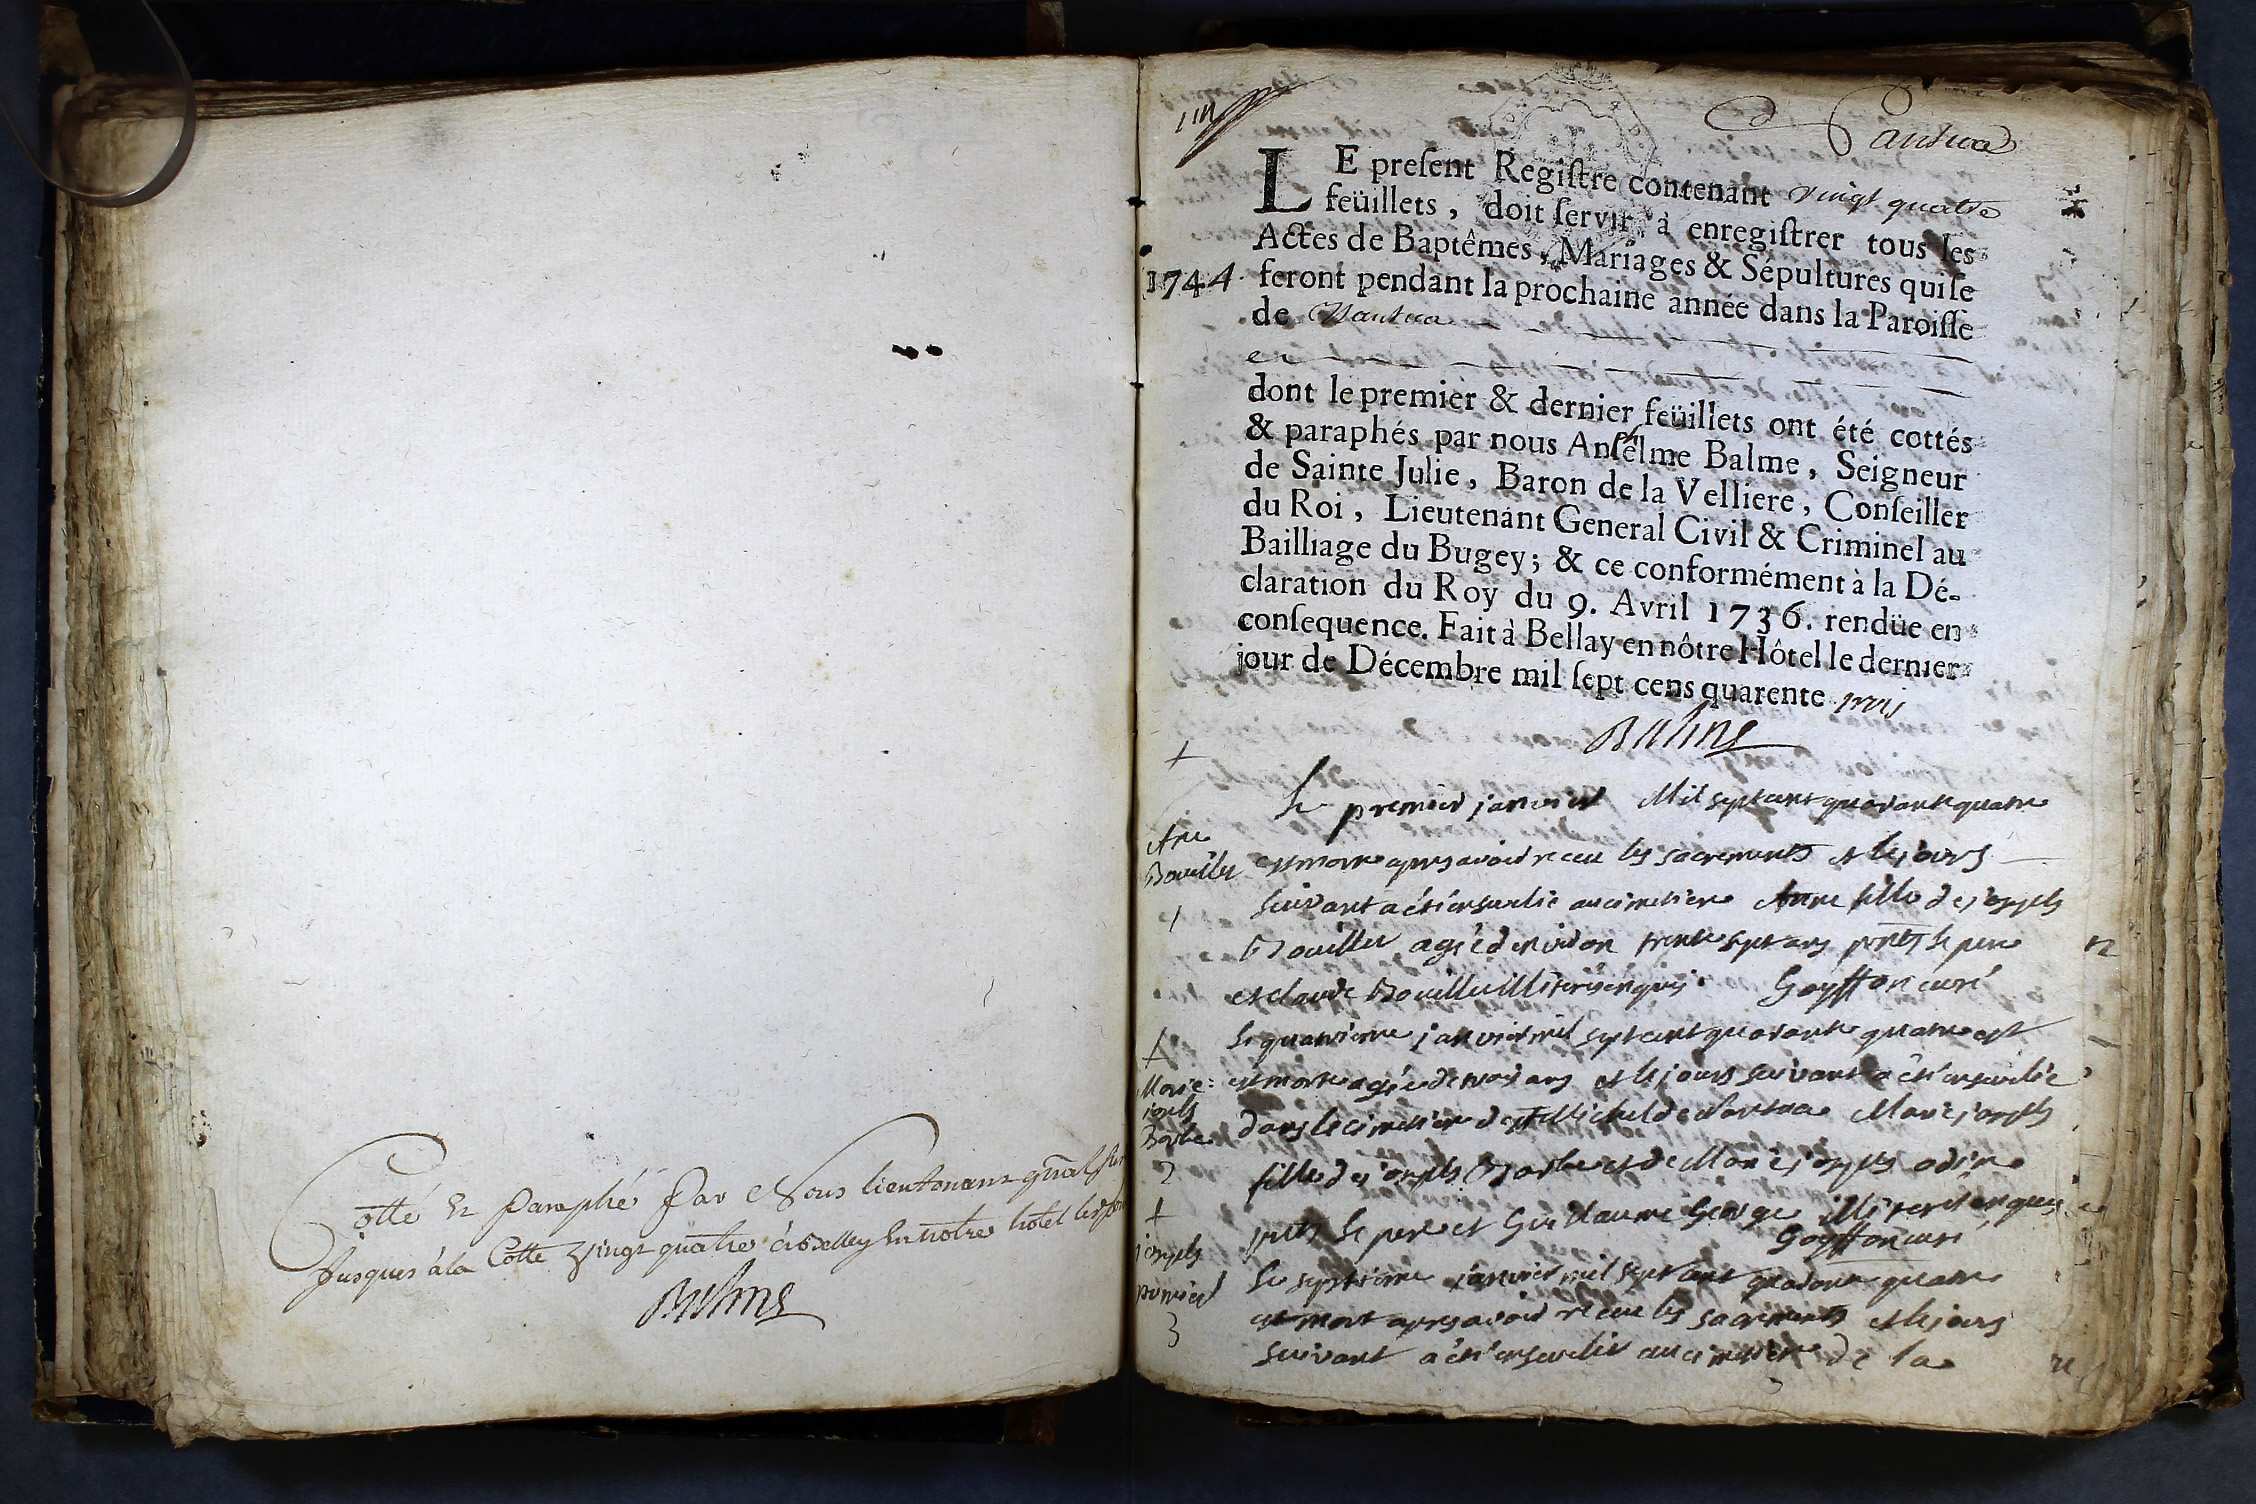 Cotté Et Paraphé Par Nous lieutenant gñal sus
Jusques à la Cotte vingt quatre à Belley En notre hotel les
Balme
Nantua
LE preſent Regiſtre contenant vingt quatre
feüillets, doit ſervir à enregiſtrer tous les
Actes de Baptêmes, Mariages & Sépultures qui ſe
1744. feront pendant la prochaine année dans la Paroiſſe
de Nantua
en
dont le premier & dernier feüillets ont été cottés
& paraphés par nous Anthelme Balme, Seigneur
de Sainte Julie, Baron de la Velliere, Conſeiller
du Roi, Lieutenant General Civil & Criminel au
Bailliage du Bugey; & ce conformément à la Dé-
claration du Roy du 9. Avril 1736. rendüe en
conſequence. Fait à Bellay en nôtre Hôtel le dernier
jour de Décembre mil ſept cens quarente trois
Balme
Le premier janvier Mil sept cent quarante quatre
Ane
Bouillet
est morte apres avoir receu les sacrements et le jours
1
suivant a été ensevelie au cimetiere Anne fille de joseph
Bouillet agée d'environ trente sept ans pnts le pere
et claude Bouillet illiterés enquis. Goyffon curé
le quatrieme janvier mil sept cent quarante quatre est
Marie
joseph
Barbe
2
est morte agée de trois ans et le jours suivant a été ensevelie
dans le cimetiere de st Michel de Nantua Marie joseph
fille de joseph Barbe et de Marie joseph odin
pnts le pere et Guillaume George illiterés enquis
Goyffon curé
joseph
premier
3
Le septieme janvier mil sept cent quarante quatre
est mort apres avoir receu les sacrements et le jours
suivant a été ensevelit au cimetiere de la